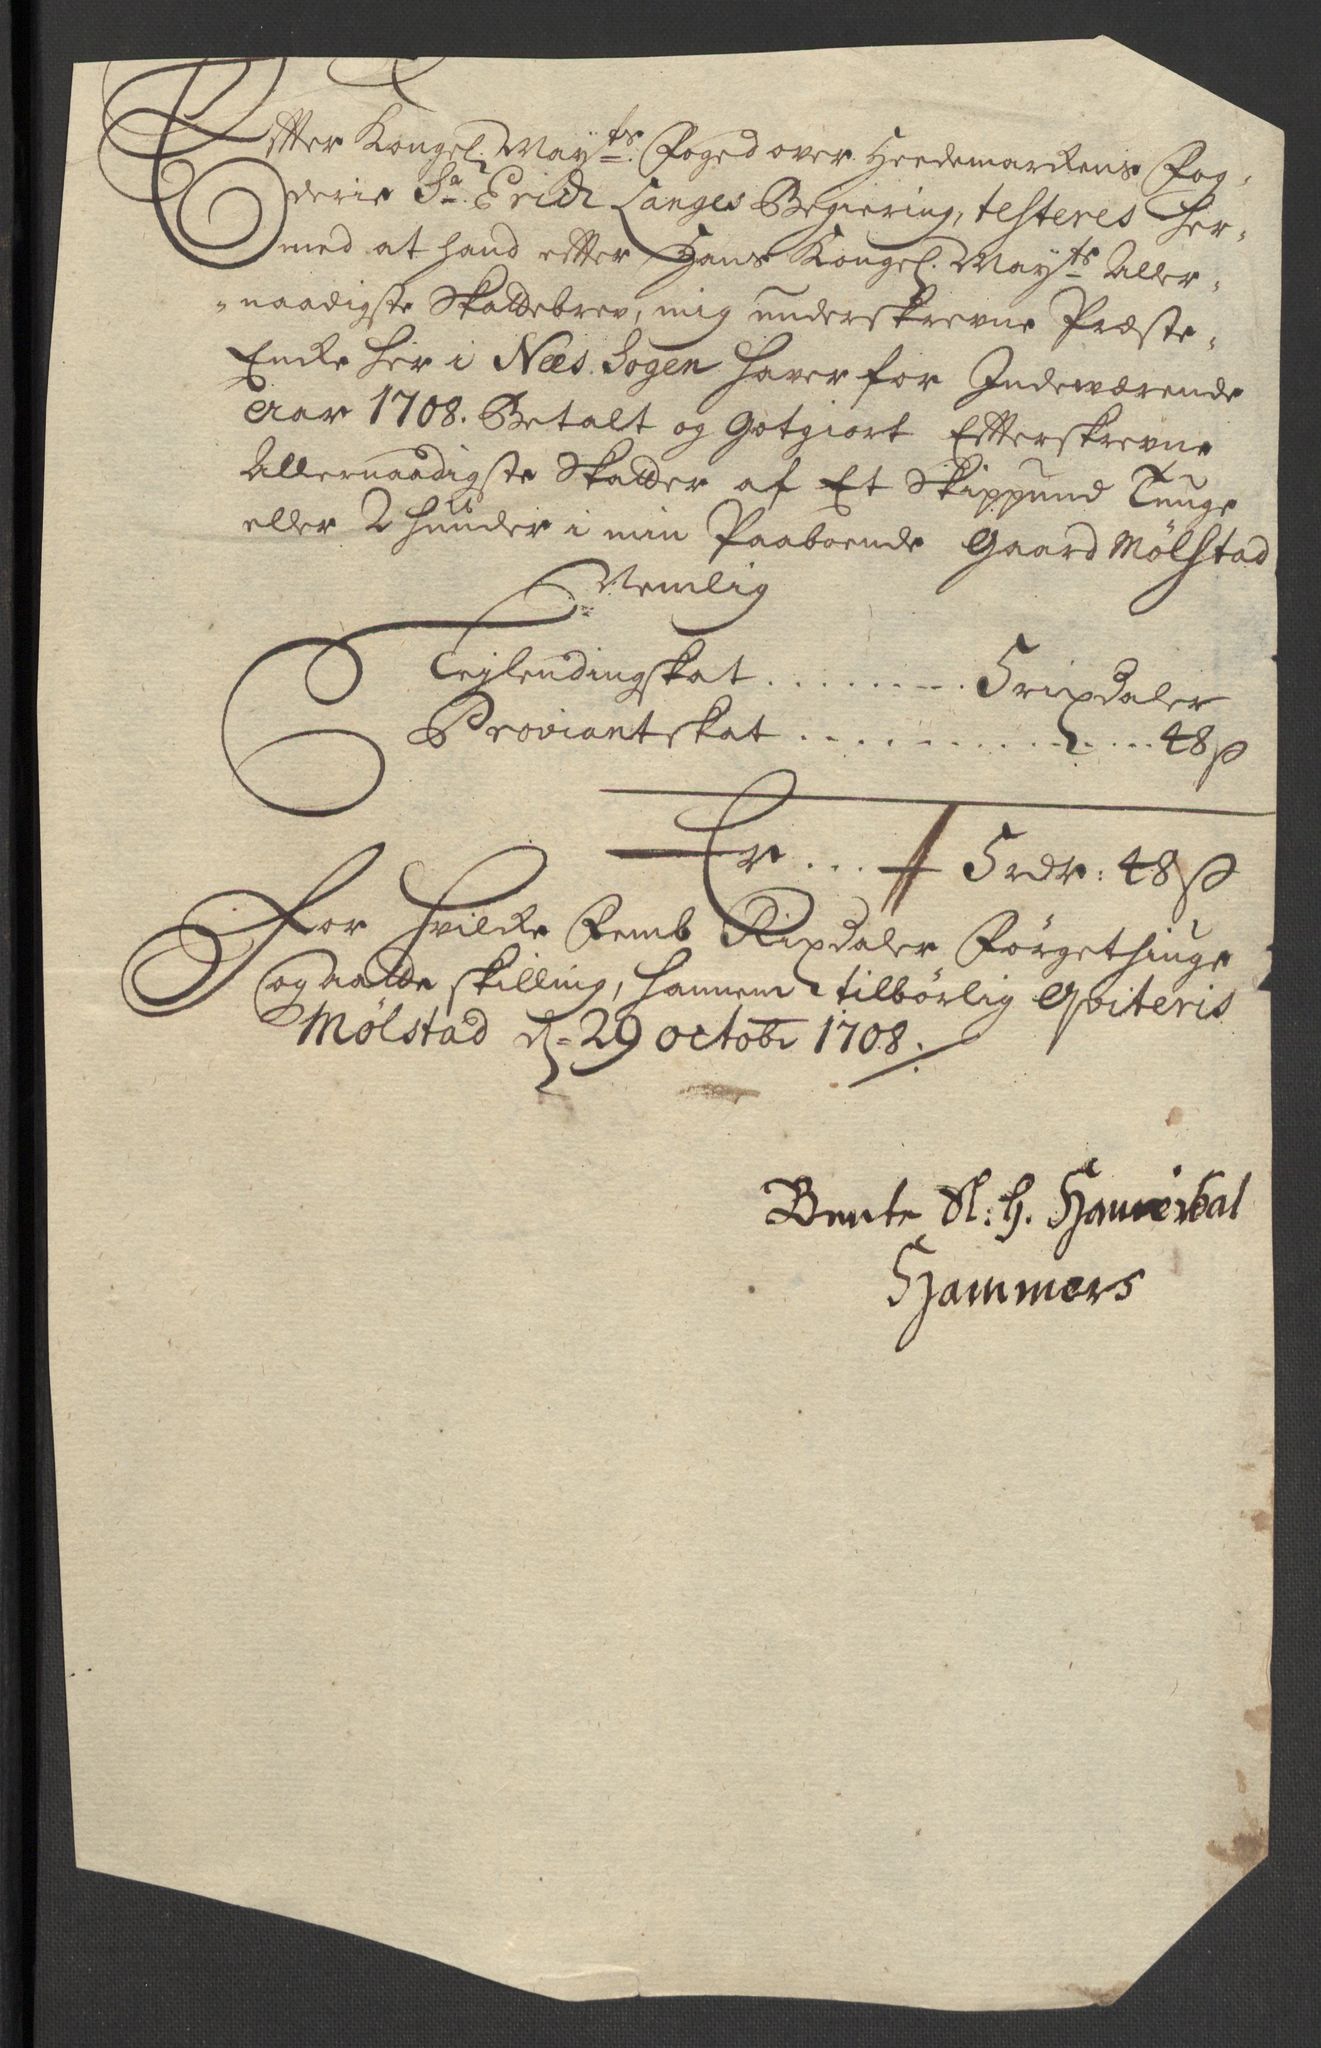 Efter Kongel. Mayts. Foged over Heedemarckens Fog-
derie Sr. Erich Langes Begiering, testeres her-
med at hand efter Hans Kongel. Mayts Aller-
naadigste Skattebrev, mig underskrevne Præste-
Encke her i Næs Sogen haver for Indeværende
Aar 1708. Betalt og Gotgiort Efterskrevne
Allernaadigste Skatter af Et Skippund Tunge
eller 2 huuder i min Paaboende Gaard Mølstad
Nemlig
Lejlendingskat ......... 5 rixdaler
Proviantskat ............... 48 ß
Er ... 5 rdr: 48 ß
For hvilcke Femb Rixdaler Førgethiuge
og aatte skilling, hannem tilbørlig Qviteris
Mølstad d= 29 octobr 1708.
Bente Sl: H.
Hammers